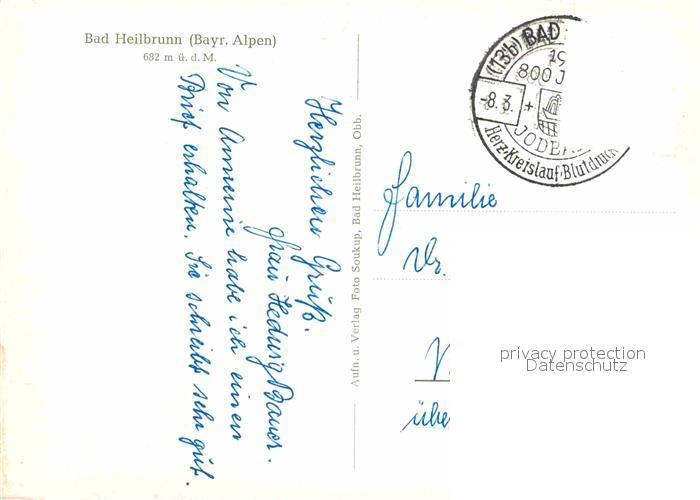 Bad Heilbrunn (Bayr. Alpen)
682 m ü. d. M.
Herzlichen Gruß.
Frau Hedwig Bauer.
Von Annemie habe ich einen
Brief erhalten. Sie schreibt sehr gut.
Aufn. u. Verlag Foto Soukup, Bad Heilbrunn, Obb.
(13b) BAD
19
800 J
-8.3.
JODB
Herz-Kreislauf-Blutdruck
Familie
Dr.
übe
privacy protection
Datenschutz